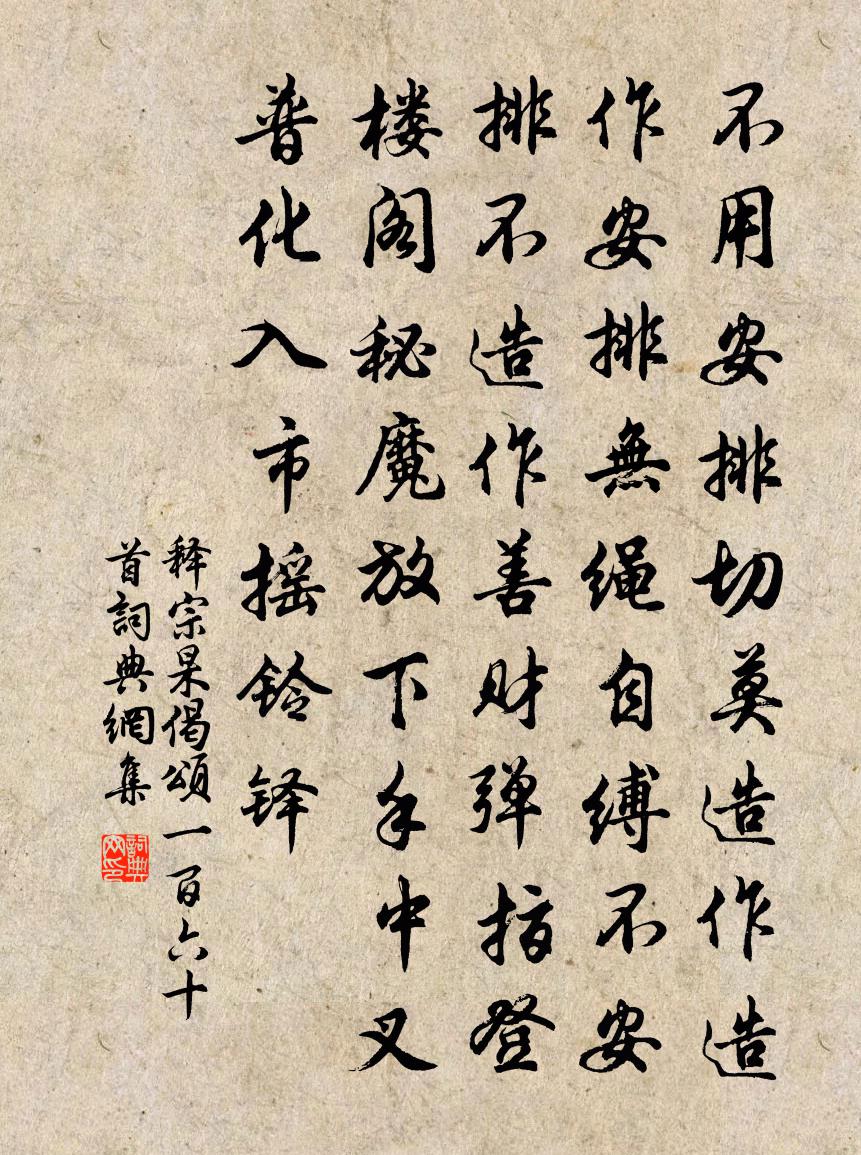 不用安排切莫造作造
作安排無绳自缚不安
排不造作善财弹指登
楼阁秘魔放下手中叉
普化入市摇铃铎
释宗杲偈頌一百六十
首詞典網集
詞典網印